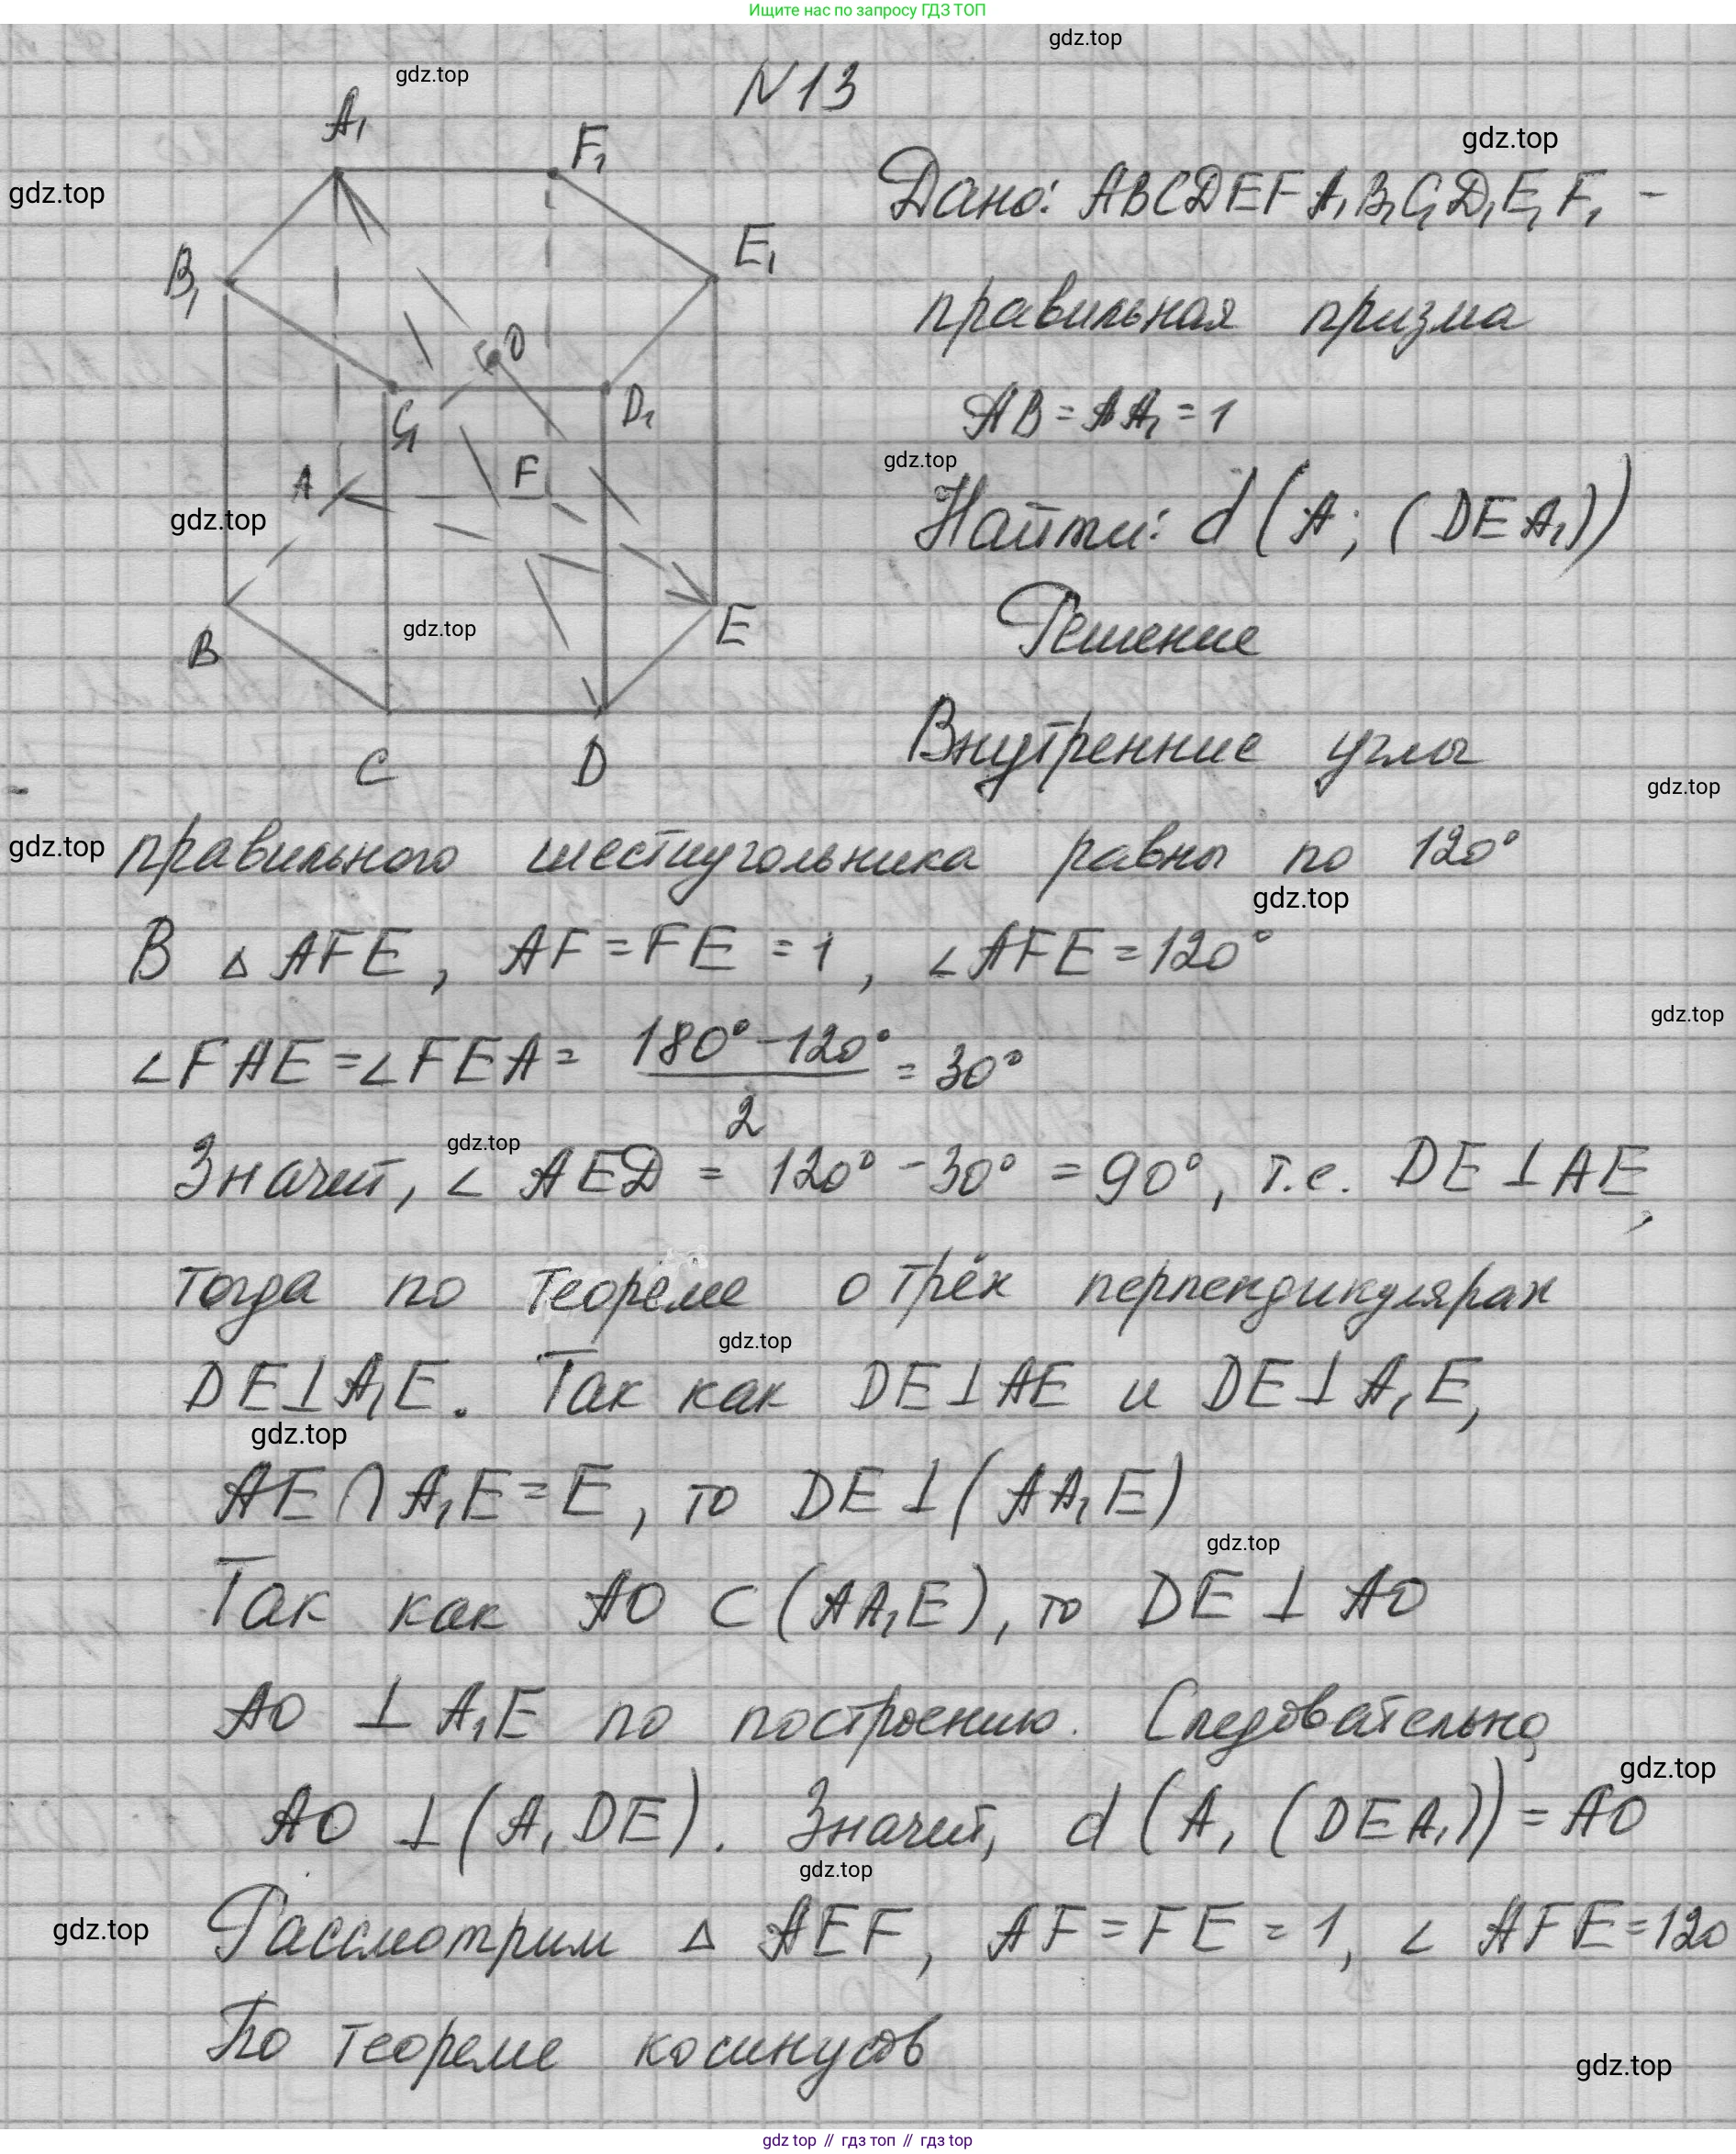 Ищите нас по запросу ГДЗ ТОП
gdz.top
gdz.top
N13
A₁
F₁
gdz.top
gdz.top
Дано: ABCDEFA₁B₁C₁D₁E₁F₁ –
E₁
B₁
правильная призма
O
C₁
D₁
AB = AA₁ = 1
gdz.top
A
F
gdz.top
Найти: d(A; (DEA₁))
gdz.top
B
E
Решение
C
D
Внутренние углы
gdz.top
gdz.top
правильного шестиугольника равны по 120°
gdz.top
В △ AFE, AF = FE = 1, ∠AFE = 120°
gdz.top
∠FAE = ∠FEA = (180° – 120°)/2 = 30°
gdz.top
Значит, ∠ AED = 120° – 30° = 90°, т.е. DE ⊥ AE,
тогда по теореме о трёх перпендикулярах
gdz.top
DE ⊥ A₁E. Так как DE ⊥ AE и DE ⊥ A₁E,
gdz.top
AE ∩ A₁E = E, то DE ⊥ (AA₁E)
gdz.top
Так как AO ⊂ (AA₁E), то DE ⊥ AO
AO ⊥ A₁E по построению. Следовательно,
gdz.top
AO ⊥ (A₁DE). Значит, d(A, (DEA₁)) = AO
gdz.top
gdz.top
Рассмотрим △ AEF, AF = FE = 1, ∠ AFE = 120
По теореме косинусов
gdz.top
gdz top // гдз топ // гдз top